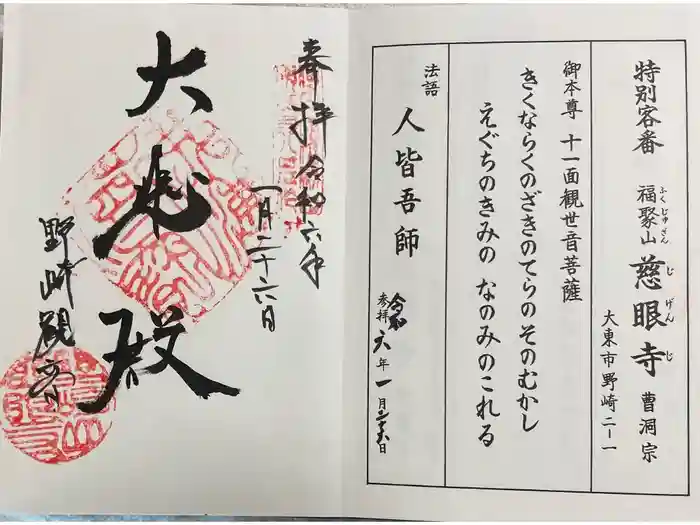 特別客番 福聚山 慈眼寺 曹洞宗
ふくじゅさん じげんじ
大東市野崎二ー一
御本尊 十一面観世音菩薩
きくならくのざきのてらのそのむかし
えぐちのきみの なのみのこれる
法語 人皆吾師
参拝 令和六年一月二十六日
奉拝 令和六年
一月二十六日
大悲殿
野崎観音